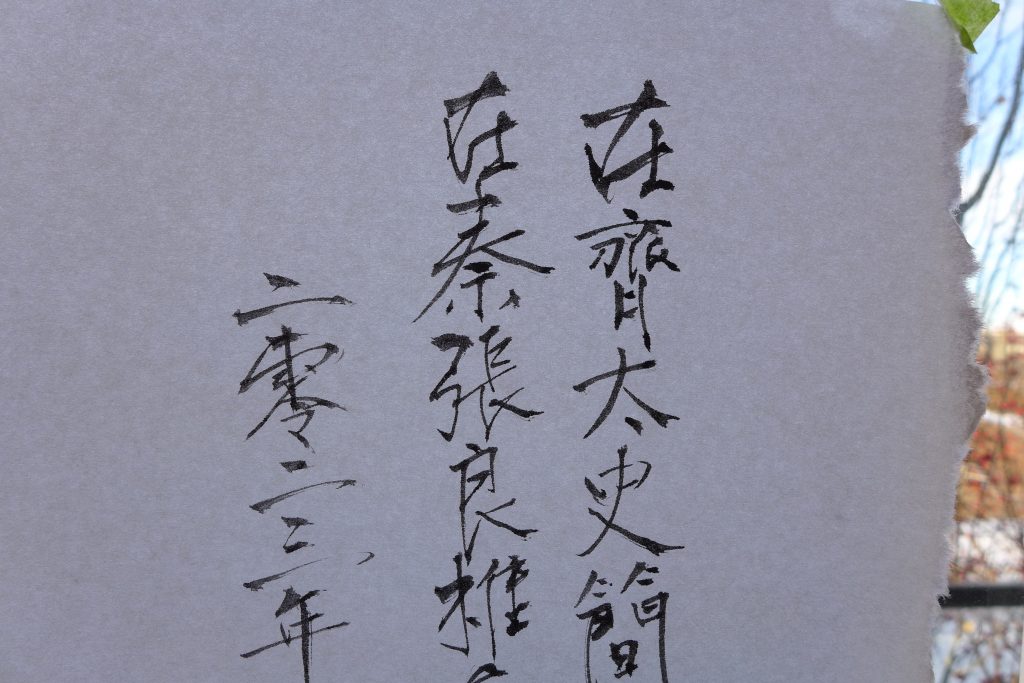 在齊太史簡
在秦張良椎
二零二三年